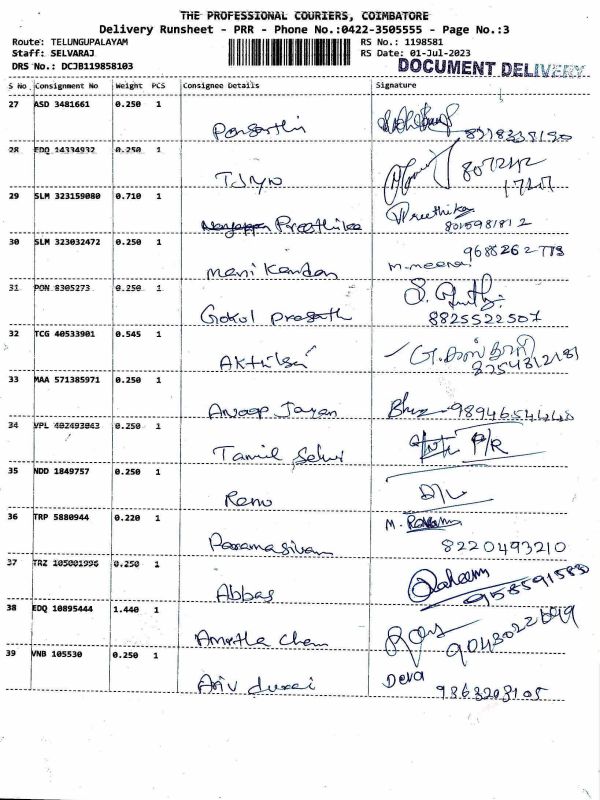 THE PROFESSIONAL COURIERS, COIMBATORE
Delivery Runsheet - PRR - Phone No.:0422-3505555 - Page No.:3
Route: TELUNGUPALAYAM RS No.: 1198581
Staff: SELVARAJ RS Date: 01-Jul-2023
DRS No.: DCJB119858103 DOCUMENT DELIVERY
S No Consignment No Weight PCS Consignee Details Signature
27 ASD 3481661 0.250 1
28 EDQ 14334932 0.250 1
807242
29 SLM 323159080 0.710 1 Preethika Preethika
8015981812
30 SLM 323032472 0.250 1 Mani Kandan M.meena
31 PON 8305273 0.250 1 Gokul Prasath
8825522507
32 TCG 40533901 0.545 1
8254812181
33 MAA 571385971 0.250 1 Anoop Jayan
34 VPL 402493043 0.250 1 Tamil Selvi P/R
35 NDD 1849757 0.250 1 Renu D/L
36 TRP 5880944 0.220 1 Paramasivam M.
8220493210
37 TRZ 105001996 0.250 1 Abbas Raheem
38 EDQ 10895444 1.440 1 Amrtla Chem
39 VNB 105530 0.250 1 Ariv durai Deva